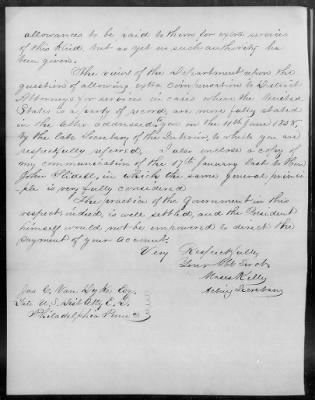 allowances to be paid to them for extra services
of this kind, but as yet no such authority has
been given.
The views of the Department upon the
question of allowing extra compensation to District
Attorneys for services in cases where the United
States is a party of record, are more fully stated
in the letter addressed to you on the 11th June 1858,
by the late Secretary of the Interior, to which you are
respectfully referred. I also enclose a copy of
my communication of the 17th January last to Hon
John Slidell, in which the same general princi-
ple is very fully considered.
The practice of the Government in this
respect indeed, is well settled, and the President
himself would not be empowered to direct the
payment of your account.
Very Respectfully
Your Obt Servt
Moses Kelly
Acting Secretary
Jas C. Van Dyke Esq.
Late U.S. Dist Atty E. D.
Philadelphia Penna